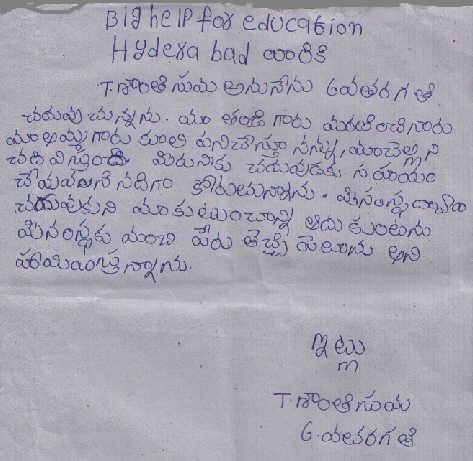 Big help for education
Hydera bad వారికి
T. శాంతి సుమ అను నేను 6వ తరగతి
చదువు చున్నాను. మా తండ్రి గారు మరణించినారు
మా అమ్మగారు కూలి పని చేస్తూ నన్ను, మా చెల్లిని
చదివిస్తుంది మీరు నాకు చదువుడకు సహాయం
చేయవలసినదిగా కోరుచున్నాను. మీ సంస్థ ద్వారా
చదువుకుని మా కుటుంబాన్ని ఆదుకుంటాను
మీ సంస్థకు మంచి పేరు తెచ్చే పెడుతాను అని
హామీయిస్తున్నాను.
ఇట్లు
T. శాంతి సుమ
6. వతరగతి